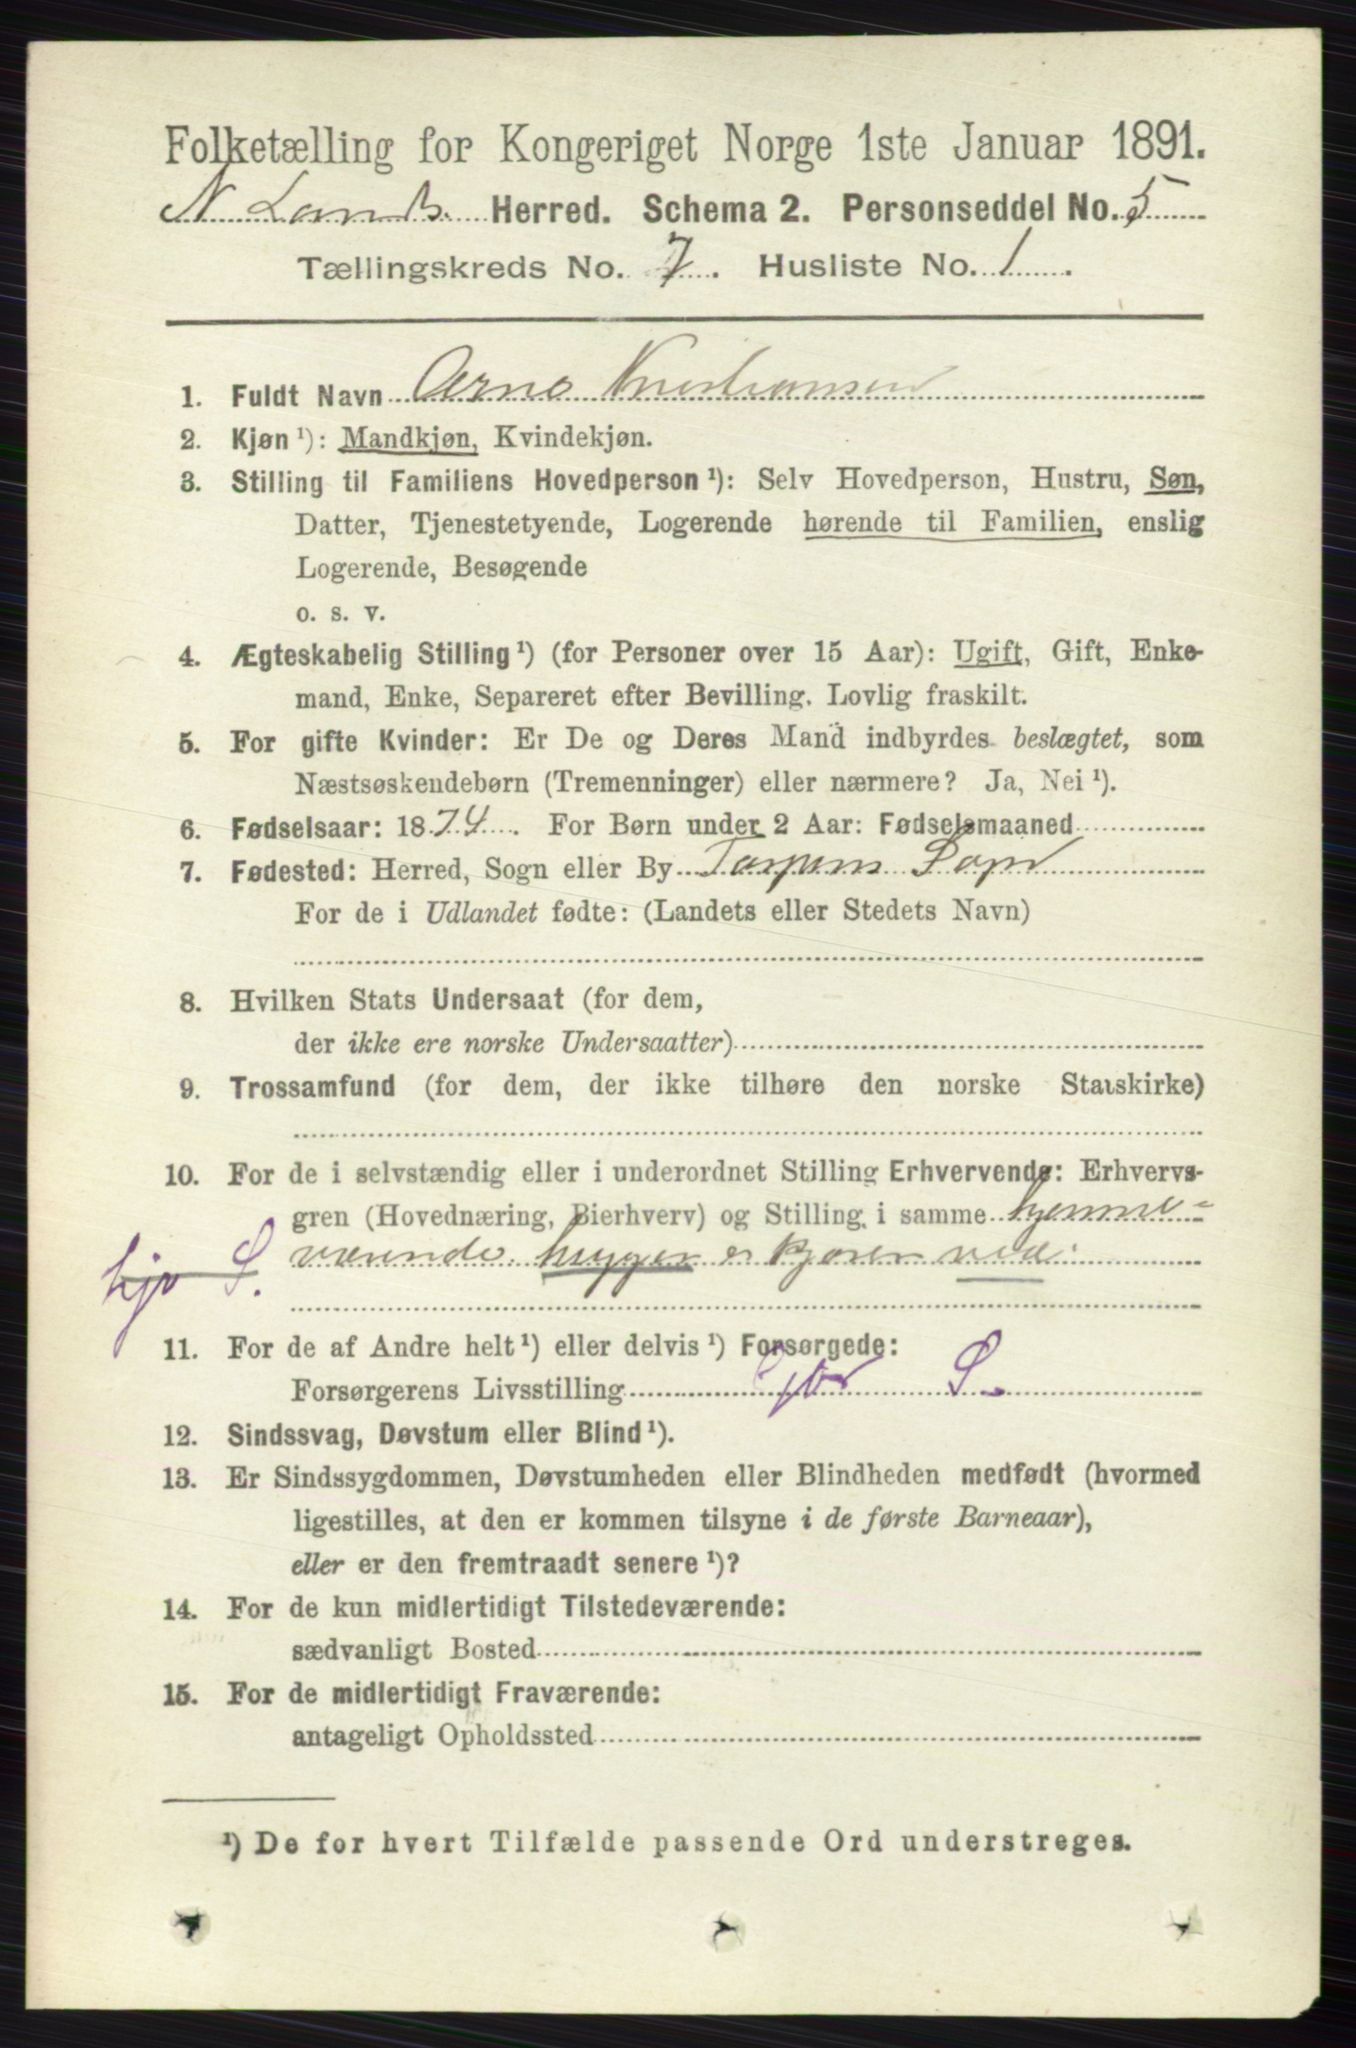 Folketælling for Kongeriget Norge 1ste Januar 1891.
N. Land Herred. Schema 2. Personseddel No. 5
Tællingskreds No. 7. Husliste No. 1.
1. Fuldt Navn Arne Kristiansen
2. Kjøn ¹): Mandkjøn, Kvindekjøn.
3. Stilling til Familiens Hovedperson ¹): Selv Hovedperson, Hustru, Søn,
Datter, Tjenestetyende, Logerende hørende til Familien, enslig
Logerende, Besøgende
o. s. v.
4. Ægteskabelig Stilling ¹) (for Personer over 15 Aar): Ugift, Gift, Enke-
mand, Enke, Separeret efter Bevilling. Lovlig fraskilt.
5. For gifte Kvinder: Er De og Deres Mand indbyrdes beslægtet, som
Næstsøskendebørn (Tremenninger) eller nærmere? Ja, Nei ¹).
6. Fødselsaar: 1874. For Børn under 2 Aar: Fødselsmaaned
7. Fødested: Herred, Sogn eller By Torpens Sogn
For de i Udlandet fødte: (Landets eller Stedets Navn)
8. Hvilken Stats Undersaat (for dem,
der ikke ere norske Undersaatter)
9. Trossamfund (for dem, der ikke tilhøre den norske Statskirke)
10. For de i selvstændig eller i underordnet Stilling Erhvervende: Erhvervs-
gren (Hovednæring, Bierhverv) og Stilling i samme hjemme-
hjv S. værende hugger o kjører ved.
11. For de af Andre helt ¹) eller delvis ¹) Forsørgede:
Forsørgerens Livsstilling S.
12. Sindssvag, Døvstum eller Blind ¹).
13. Er Sindssygdommen, Døvstumheden eller Blindheden medfødt (hvormed
ligestilles, at den er kommen tilsyne i de første Barneaar),
eller er den fremtraadt senere ¹)?
14. For de kun midlertidigt Tilstedeværende:
sædvanligt Bosted
15. For de midlertidigt Fraværende:
antageligt Opholdssted
¹) De for hvert Tilfælde passende Ord understreges.